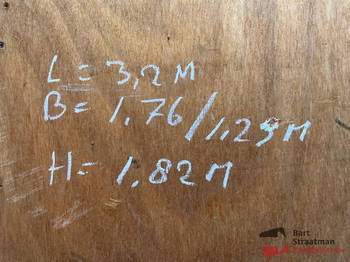 L = 3,2 M
B = 1.76/1.29 M
H = 1.82 M
Bart
Straatman